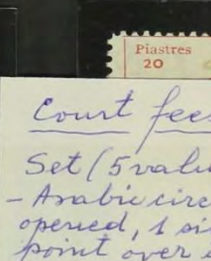 Piastres
20
Court fees
Set (5 valu
- Arabic circ
opened, 1 si
point over